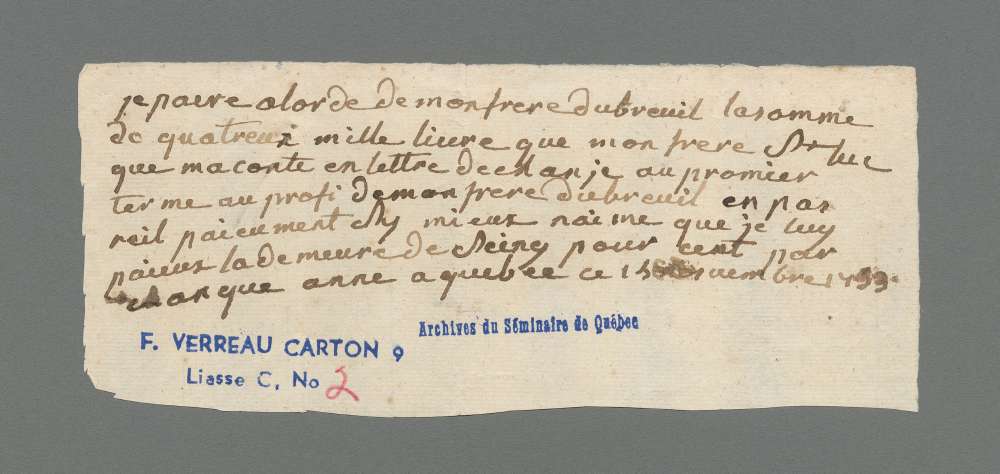 je paire a lordé de mon frere dubreuil la somme
de quatreux mille livre que mon frere St luc
que ma conte en lettre de chanje au promier
terme au profi de mon frere dubreuil en par
reil paieument sy mieux naime que je luy
paieux la demeure de seinq pour cent par
chanque anne a quebec ce 15 novembre
F. VERREAU CARTON 9
Archives du Séminaire de Québec
Liasse C, No 2